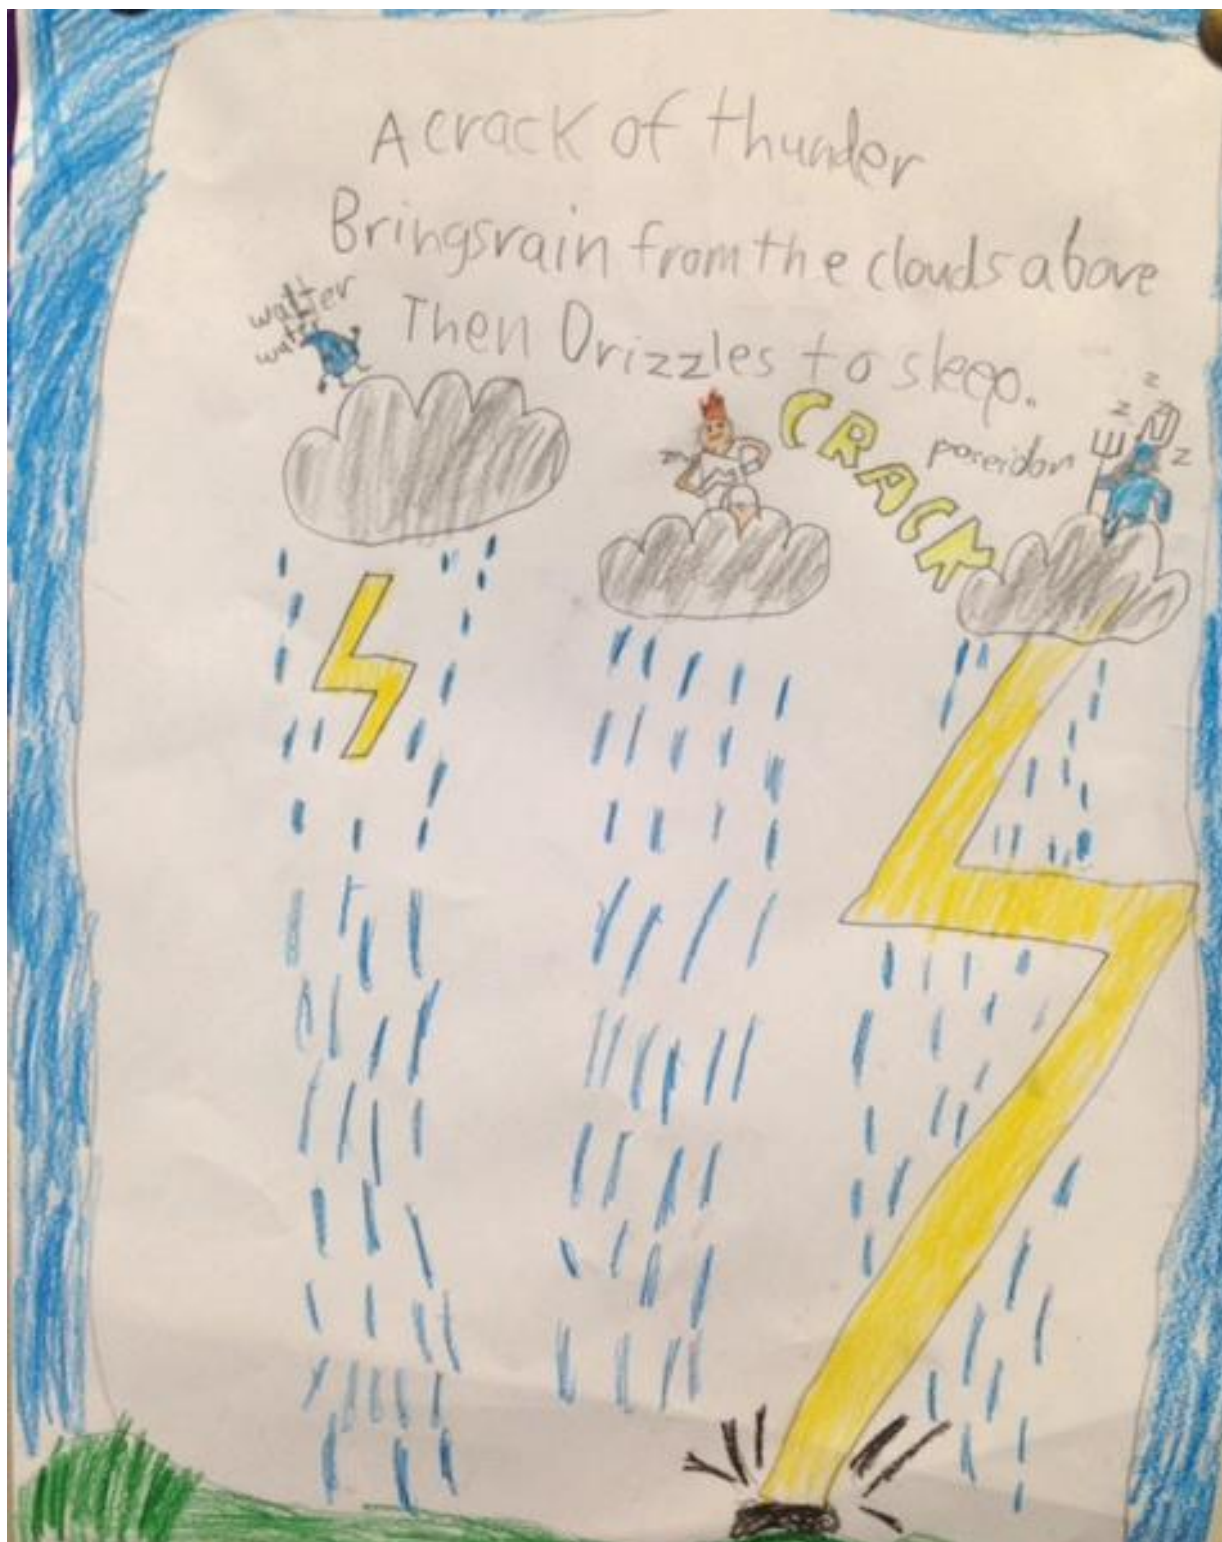 A crack of thunder
Brings rain from the clouds above
Then Drizzles to sleep.
water
water
CRACK
poseidon
z
z z
z